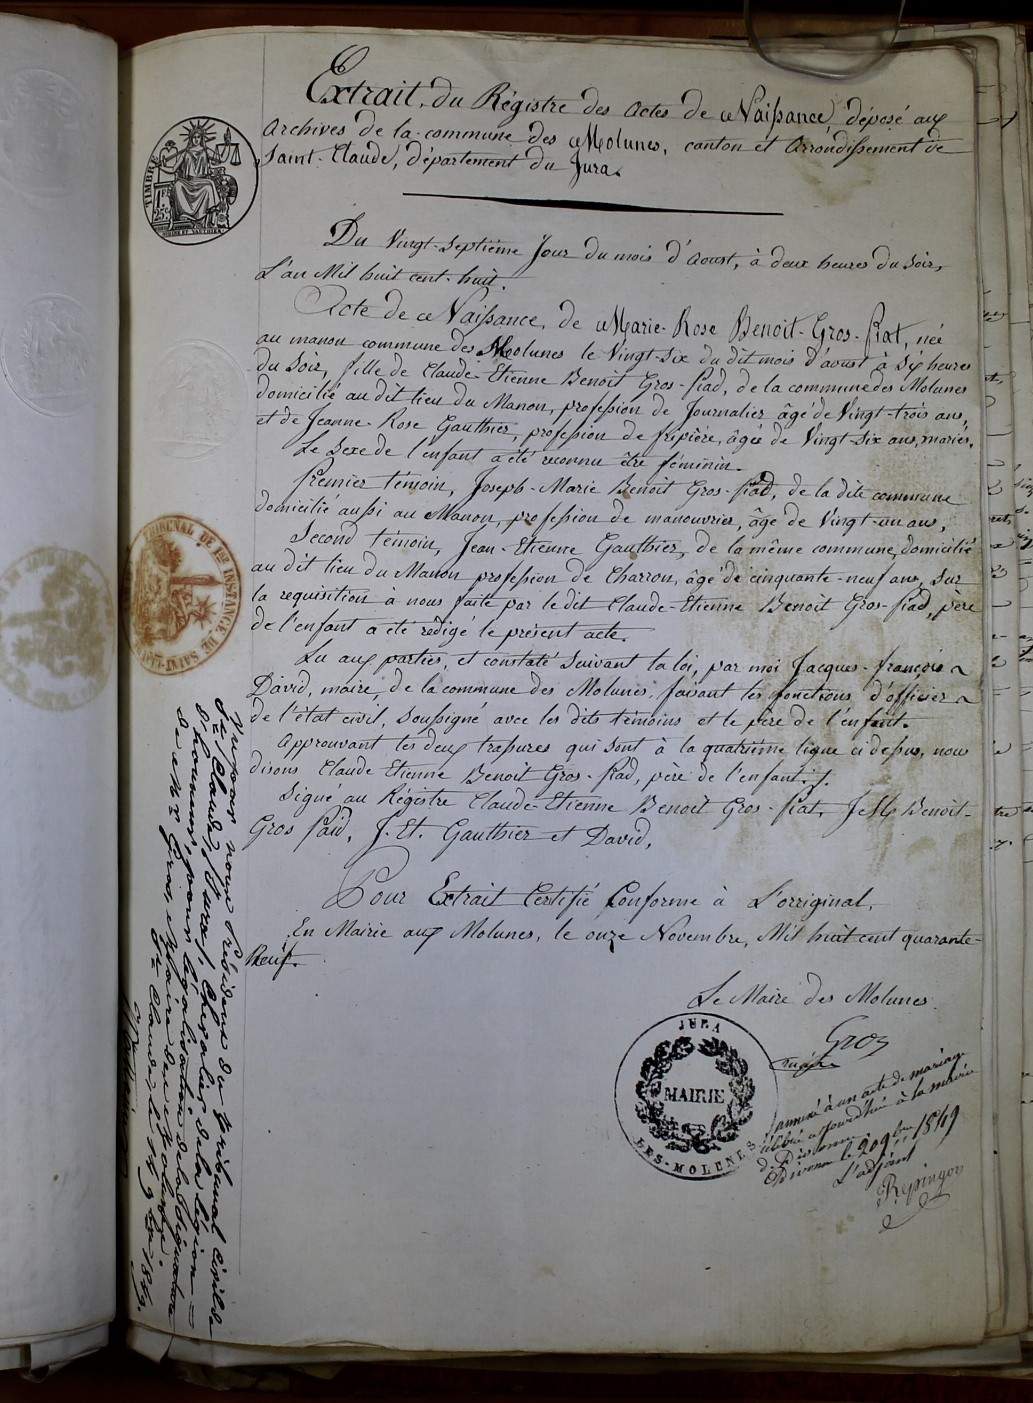 Extrait, du Régistre des actes de Naissance, déposé aux
archives de la commune des Molunes, canton et arrondissement de
Saint-Claude, département du Jura.
TIMBRE
Du Vingt-Septième Jour du mois d'Aoust, à deux heures du Soir,
L'an Mil huit cent-huit.
Acte de Naissance, de Marie-Rose Benoit-Gros-fiat, née
au manon commune des Molunes le Vingt-Six du dit mois d'aoust à Six heures
du Soir, fille de Claude-Etienne Benoit Gros-fiad, de la commune des Molunes
domicilié au dit lieu du Manon, profession de Journalier âgé de Vingt-trois ans,
et de Jeanne-Rose Gauthier, profession de fripière, âgée de Vingt-Six ans, mariés.
Le Sexe de l'enfant a été reconnu être féminin.
Premier témoin, Joseph-Marie Benoit Gros-fiad, de la dite commune
domicilié aussi au Manon, profession de manouvrier, âgé de Vingt-un ans,
Second témoin, Jean-Etienne Gauthier, de la même commune, domicilié
au dit lieu du Manon profession de Charron, âgé de cinquante-neuf ans, Sur
la requisition à nous faite par le dit Claude-Etienne Benoit Gros-fiad, père
de l'enfant a été rédigé le présent acte.
Lu aux parties, et constaté Suivant la loi, par moi Jacques-françois
David, maire, de la commune des Molunes, faisant les fonctions d'officier
de l'état civil, Soussigné avec les dits témoins et le père de l'enfant.
Approuvant les deux trassures qui Sont à la quatrième ligne ci dessus, nous
disons Claude Etienne Benoit Gros-fiad, père de l'enfant ./.
Signé au Régistre Claude-Etienne Benoit Gros-fiat, J. M. Benoit-
Gros faid, J. Et. Gauthier et David,
Pour Extrait Certifié Conforme à L'orriginal,
En Mairie aux Molunes, le onze Novembre, Mil huit cent quarante-
Neuf.
Le Maire des Molunes
Gros
maire
JURA
MAIRIE
DES-MOLUNES
annexé à un acte de mariage
célébré aujourd'hui à la mairie
Divonne le 20 9bre 1849
L'adjoint
TRIBUNAL DE 1re INSTANCE DE SAINT-CLAUDE
Vu par nous Président du tribunal civil de
St Claude, (Jura), Chevalier de la légion
d'honneur, pour légalisation de la Signature
de Mr Gros, Maire des Molunes.
St Claude le 14 9bre 1849.